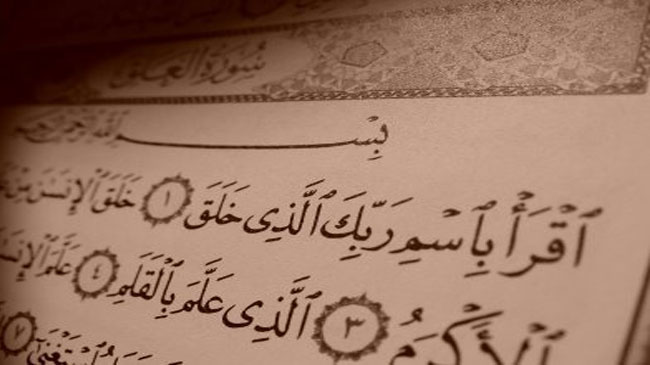 سُورَةُ الْعَلَقِ
بِسْمِ اللَّهِ الرَّحْمَٰنِ الرَّحِيمِ
ٱقْرَأْ بِٱسْمِ رَبِّكَ ٱلَّذِى خَلَقَ ١ خَلَقَ ٱلْإِنسَٰنَ مِنْ
ٱلْأَكْرَمُ ٣ ٱلَّذِى عَلَّمَ بِٱلْقَلَمِ ٤ عَلَّمَ ٱلْإِنسَٰ
ٱسْتَغْنَىٰٓ ٧